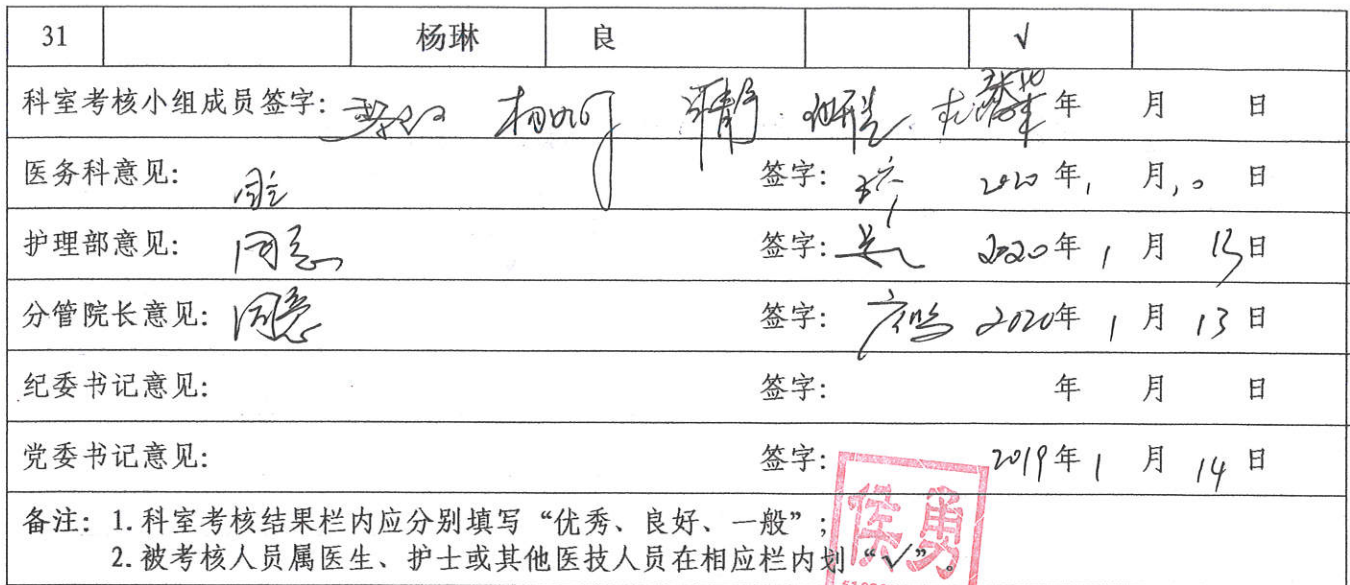 31 杨琳 良 √
科室考核小组成员签字: 年 月 日
医务科意见: 同意 签字: 2020年1月10日
护理部意见: 同意 签字: 2020年1月13日
分管院长意见: 同意 签字: 2020年1月13日
纪委书记意见: 签字: 年 月 日
党委书记意见: 签字: 2019年1月14日
侯勇
备注: 1.科室考核结果栏内应分别填写“优秀、良好、一般”;
2.被考核人员属医生、护士或其他医技人员在相应栏内划“√”。